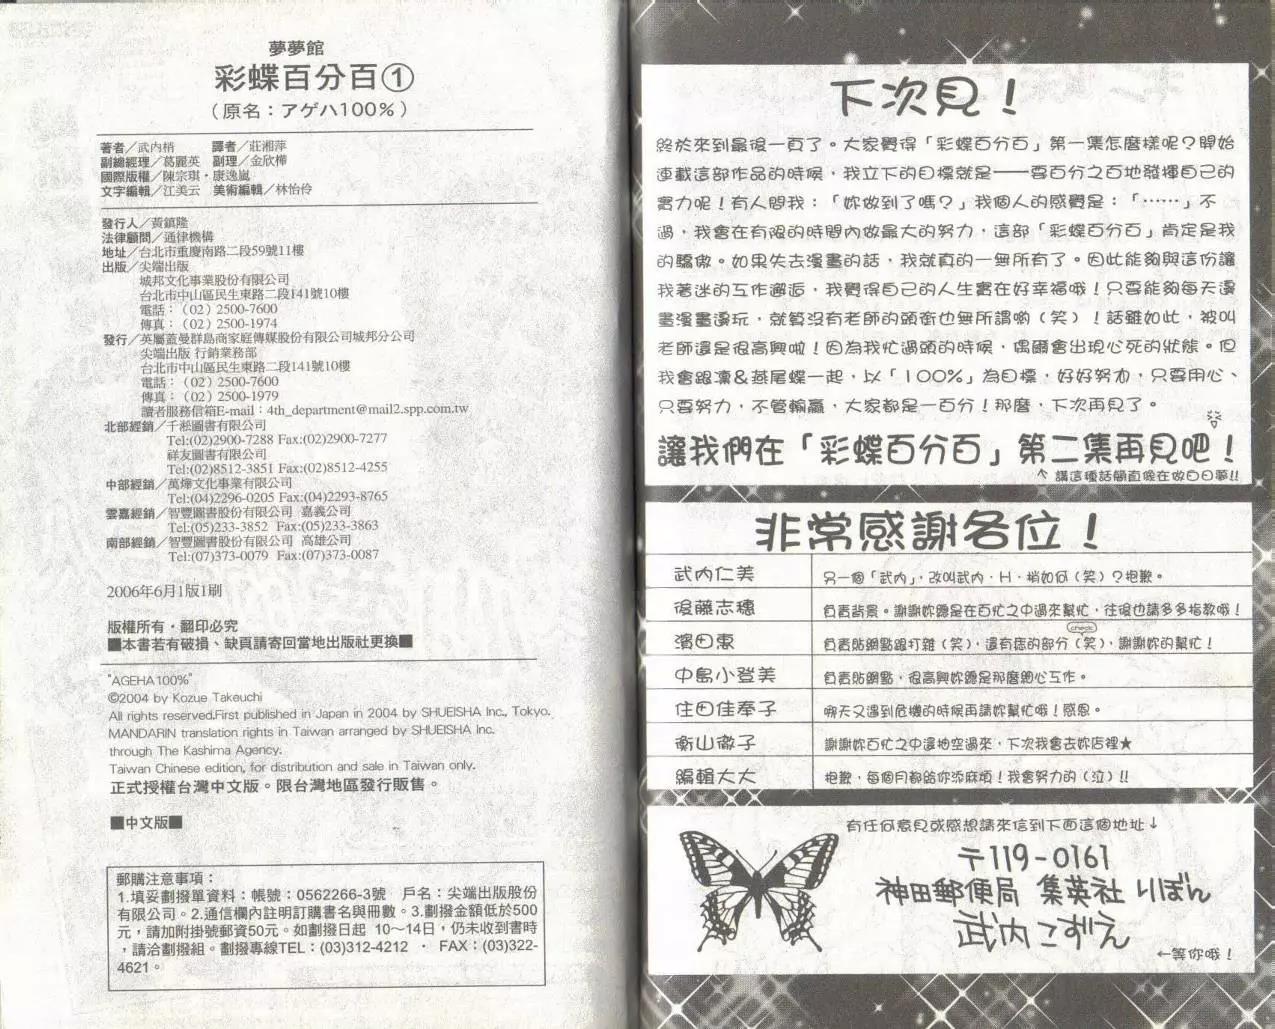 夢夢館
彩蝶百分百①
（原名：アゲハ100%）
著者／武內梢　譯者／莊湘萍
副總經理／葛麗英　副理／金欣樺
國際版權／陳宗琪・康逸嵐
文字編輯／江美云　美術編輯／林怡伶
發行人／黃鎮隆
法律顧問／通律機構
地址／台北市重慶南路二段59號11樓
出版／尖端出版
城邦文化事業股份有限公司
台北市中山區民生東路二段141號10樓
電話：（02）2500-7600
傳真：（02）2500-1974
發行／英屬蓋曼群島商家庭傳媒股份有限公司城邦分公司
尖端出版 行銷業務部
台北市中山區民生東路二段141號10樓
電話：（02）2500-7600
傳真：（02）2500-1979
讀者服務信箱E-mail：4th_department@mail2.spp.com.tw
北部經銷／千淞圖書有限公司
Tel:(02)2900-7288 Fax:(02)2900-7277
祥友圖書有限公司
Tel:(02)8512-3851 Fax:(02)8512-4255
中部經銷／萬燁文化事業有限公司
Tel:(04)2296-0205 Fax:(04)2293-8765
雲嘉經銷／智豐圖書股份有限公司 嘉義公司
Tel:(05)233-3852 Fax:(05)233-3863
南部經銷／智豐圖書股份有限公司 高雄公司
Tel:(07)373-0079 Fax:(07)373-0087
2006年6月1版1刷
版權所有・翻印必究
■本書若有破損、缺頁請寄回當地出版社更換■
"AGEHA100%"
©2004 by Kozue Takeuchi
All rights reserved.First published in Japan in 2004 by SHUEISHA Inc., Tokyo.
MANDARIN translation rights in Taiwan arranged by SHUEISHA Inc.
through The Kashima Agency.
Taiwan Chinese edition, for distribution and sale in Taiwan only.
正式授權台灣中文版。限台灣地區發行販售。
■中文版■
郵購注意事項：
1.填妥劃撥單資料：帳號：0562266-3號　戶名：尖端出版股份
有限公司。2.通信欄內註明訂購書名與冊數。3.劃撥金額低於500
元，請加附掛號郵資50元。如劃撥日起 10～14日，仍未收到書時
，請洽劃撥組。劃撥專線TEL：(03)312-4212 ・ FAX：(03)322-
4621。
下次見！
終於來到最後一頁了。大家覺得「彩蝶百分百」第一集怎麼樣呢？開始
連載這部作品的時候，我立下的目標就是——要百分之百地發揮自己的
實力呢！有人問我：「妳做到了嗎？」我個人的感覺是：「……」不
過，我會在有限的時間內做最大的努力，這部「彩蝶百分百」肯定是我
的驕傲。如果失去漫畫的話，我就真的一無所有了。因此能夠與這份讓
我著迷的工作邂逅，我覺得自己的人生實在好幸福哦！只要能夠每天漫
畫漫畫漫玩，就算沒有老師的頭銜也無所謂喲（笑）！話雖如此，被叫
老師還是很高興啦！因為我忙過頭的時候，偶爾會出現心死的狀態。但
我會跟凜&燕尾蝶一起，以「100%」為目標，好好努力，只要用心、
只要努力，不管輸贏，大家都是一百分！那麼，下次再見了。
讓我們在「彩蝶百分百」第二集再見吧！
↖講這種話簡直像在做白日夢!!
非常感謝各位！
武內仁美　另一個「武內」，改叫武內・H・梢如何（笑）？抱歉。
後藤志穗　負責背景。謝謝妳總是在百忙之中過來幫忙，往後也請多多指教哦！
check
濱田惠　負責貼網點跟打雜（笑），還有痣的部分（笑），謝謝妳的幫忙！
中島小登美　負責貼網點，很高興妳總是那麼細心工作。
住田佳奉子　哪天又遇到危機的時候再請妳幫忙哦！感恩。
衡山徹子　謝謝妳百忙之中還抽空過來，下次我會去妳店裡★
編輯大大　抱歉，每個月都給你添麻煩！我會努力的（泣）!!
有任何意見或感想請來信到下面這個地址↓
〒119-0161
神田郵便局 集英社 りぼん
武内こずえ
←等你哦！